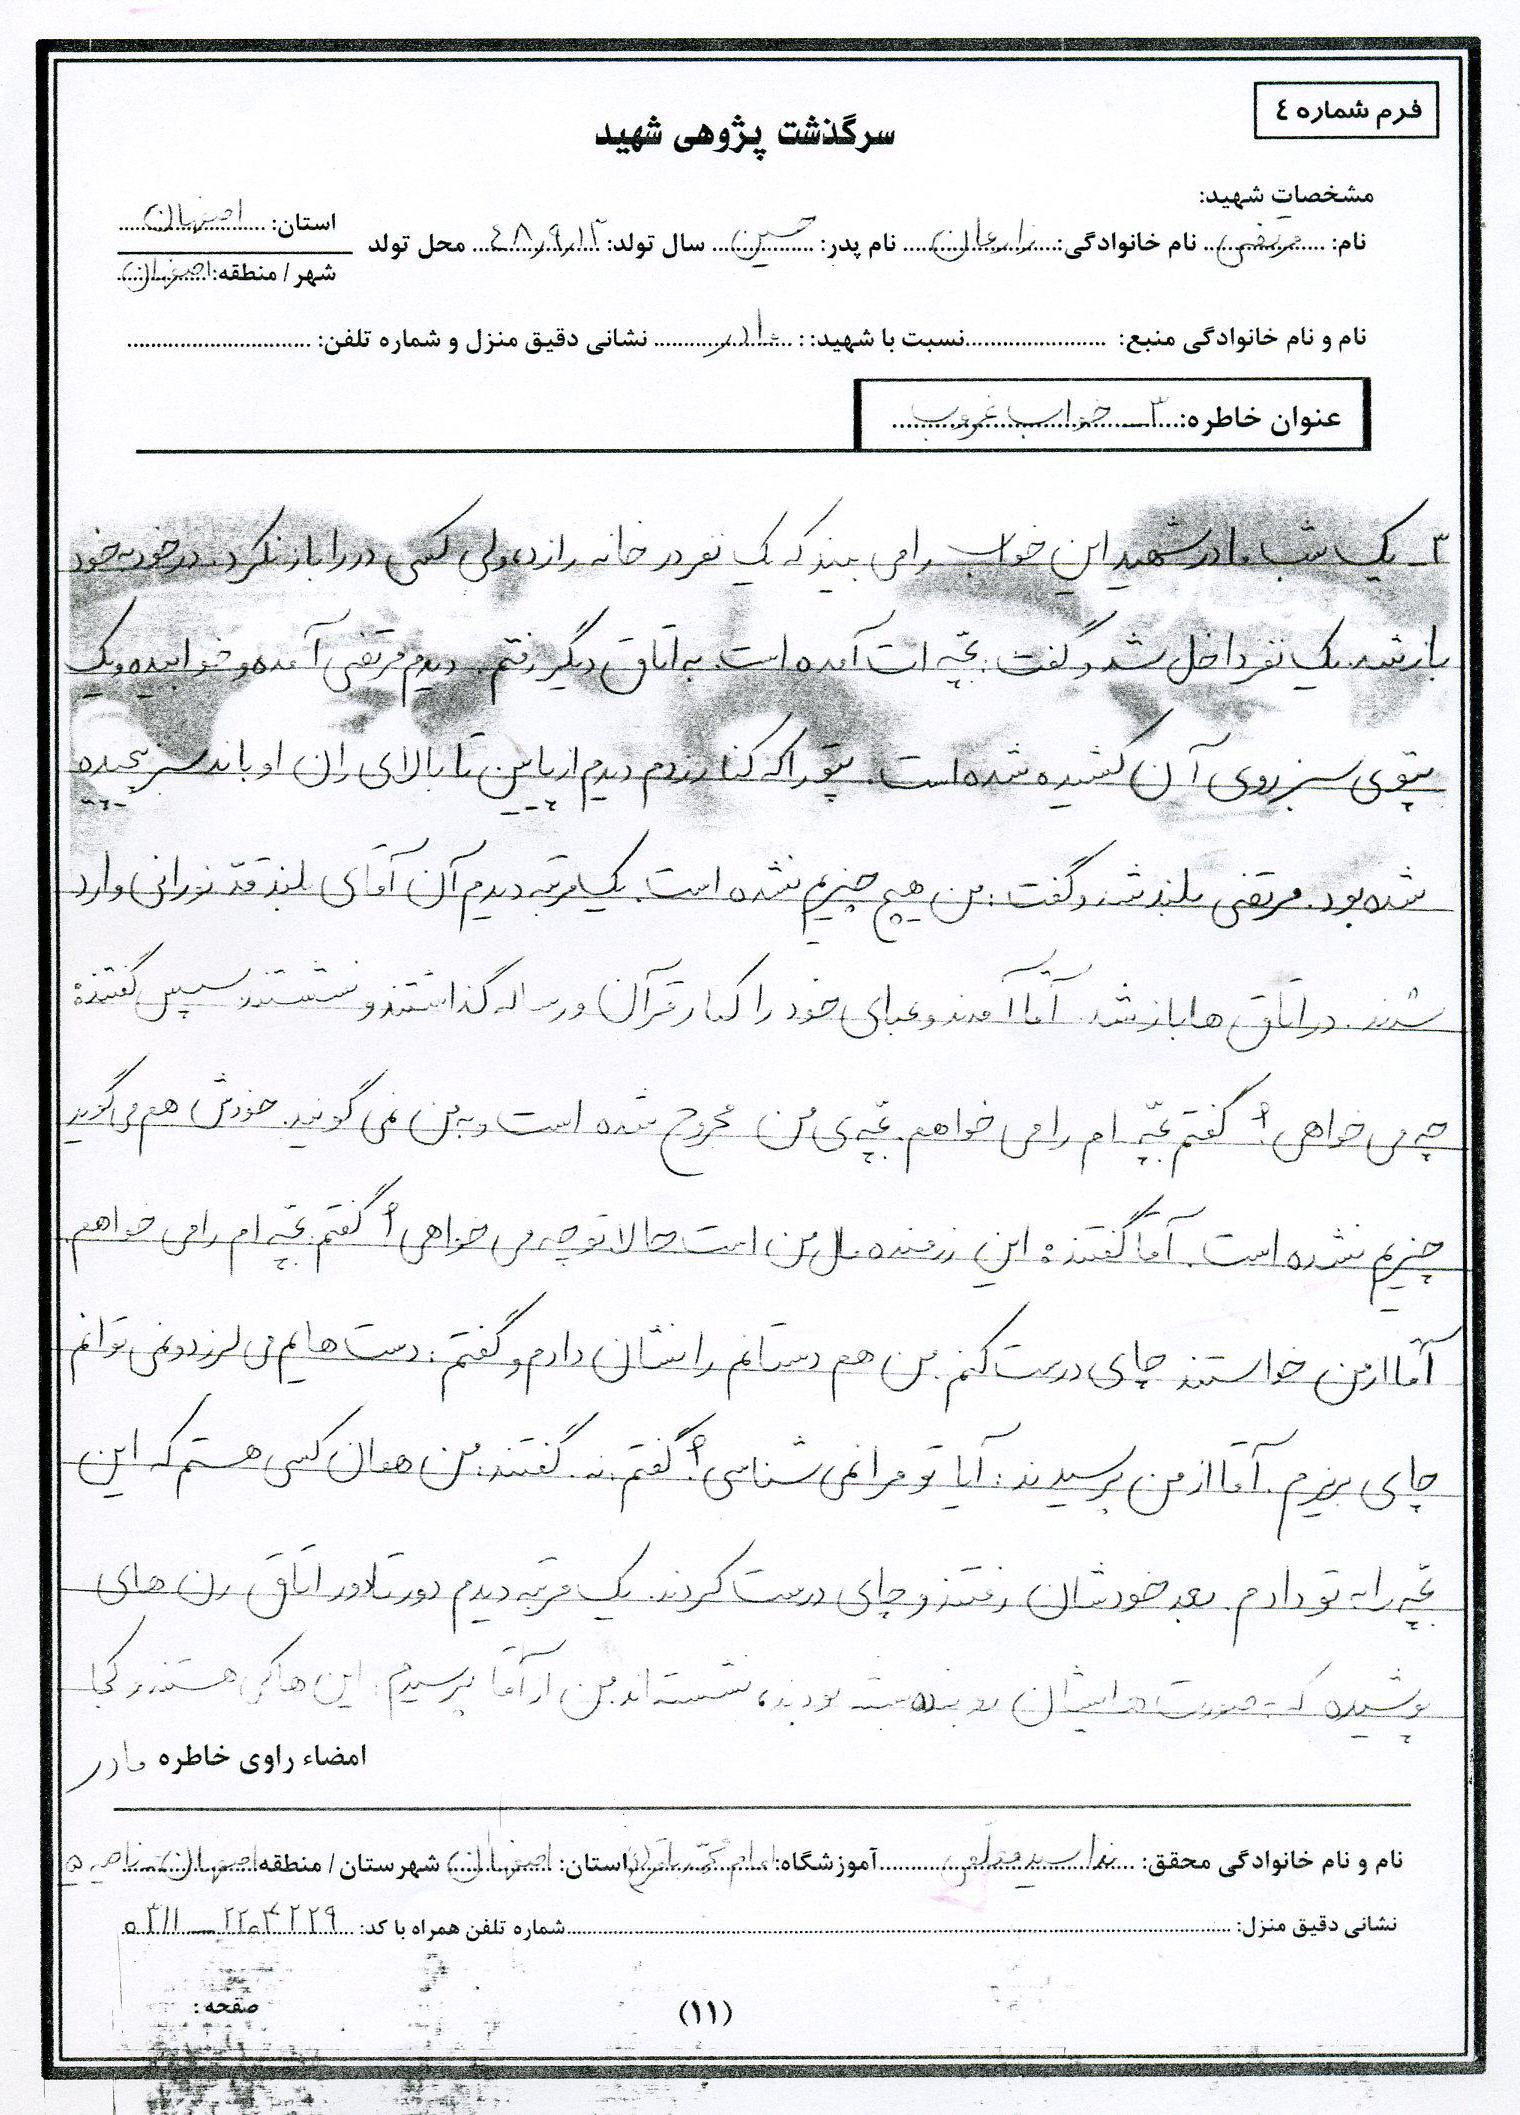 فرم شماره ٤
سرگذشت پژوهی شهید
مشخصات شهید:
نام: مرتضی نام خانوادگی: زارعان نام پدر: حسین سال تولد: ٤٨٫٩٫١٢ محل تولد
استان: اصفهان
شهر / منطقه: اصفهان
نام و نام خانوادگی منبع: نسبت با شهید: : مادر نشانی دقیق منزل و شماره تلفن:
عنوان خاطره: ٣ـ خواب غروب
٣ـ یک شب مادر شهید این خواب را می بیند که یک نفر در خانه را زد، ولی کسی در را باز نکرد. در خود به خود
باز شد. یک نفر داخل شد و گفت: بچّه ات آمده است. به اتاق دیگر رفتم. دیدم مرتضی آمده و خوابیده و یک
پتوی سبز روی آن کشیده شده است. پتو را که کنار زدم دیدم از پایین تا بالای ران او باند سبز پیچیده
شده بود. مرتضی بلند شد و گفت: من هیچ چیزیم نشده است. یک مرتبه دیدم آن آقای بلند قدّ نورانی وارد
شدند. در اتاق ها باز شد. آقا آمدند و عبای خود را کنار قرآن و رساله گذاشتند و نشستند سپس گفتند:
چه می خواهی؟ گفتم بچّه ام را می خواهم. بچّه ی من مجروح شده است و به من نمی گویند. خودش هم می گوید
چیزیم نشده است. آقا گفتند: این رزمنده مال من است حالا تو چه می خواهی؟ گفتم: بچّه ام را می خواهم.
آقا از من خواستند چای درست کنم. من هم دستانم را نشان دادم و گفتم: دست هایم می لرزد و نمی توانم
چای بریزم. آقا از من پرسیدند: آیا تو مرا نمی شناسی؟ گفتم: نه. گفتند: من همان کسی هستم که این
بچّه را به تو دادم. بعد خودشان رفتند و چای درست کردند. یک مرتبه دیدم دور تا دور اتاق زن های
پوشیده که صورت هایشان بسته بودند، نشسته اند من از آقا پرسیدم: این ها کی هستند و کجا
امضاء راوی خاطره مادر
نام و نام خانوادگی محقق: ندا سید آموزشگاه: امام محمّد باقر (ع) استان: اصفهان شهرستان / منطقه اصفهان ـ ناحیه ٥
نشانی دقیق منزل: شماره تلفن همراه با کد: ٠٣١١ ــ ٢٢٠٤٢٢٩
صفحه : (١١)